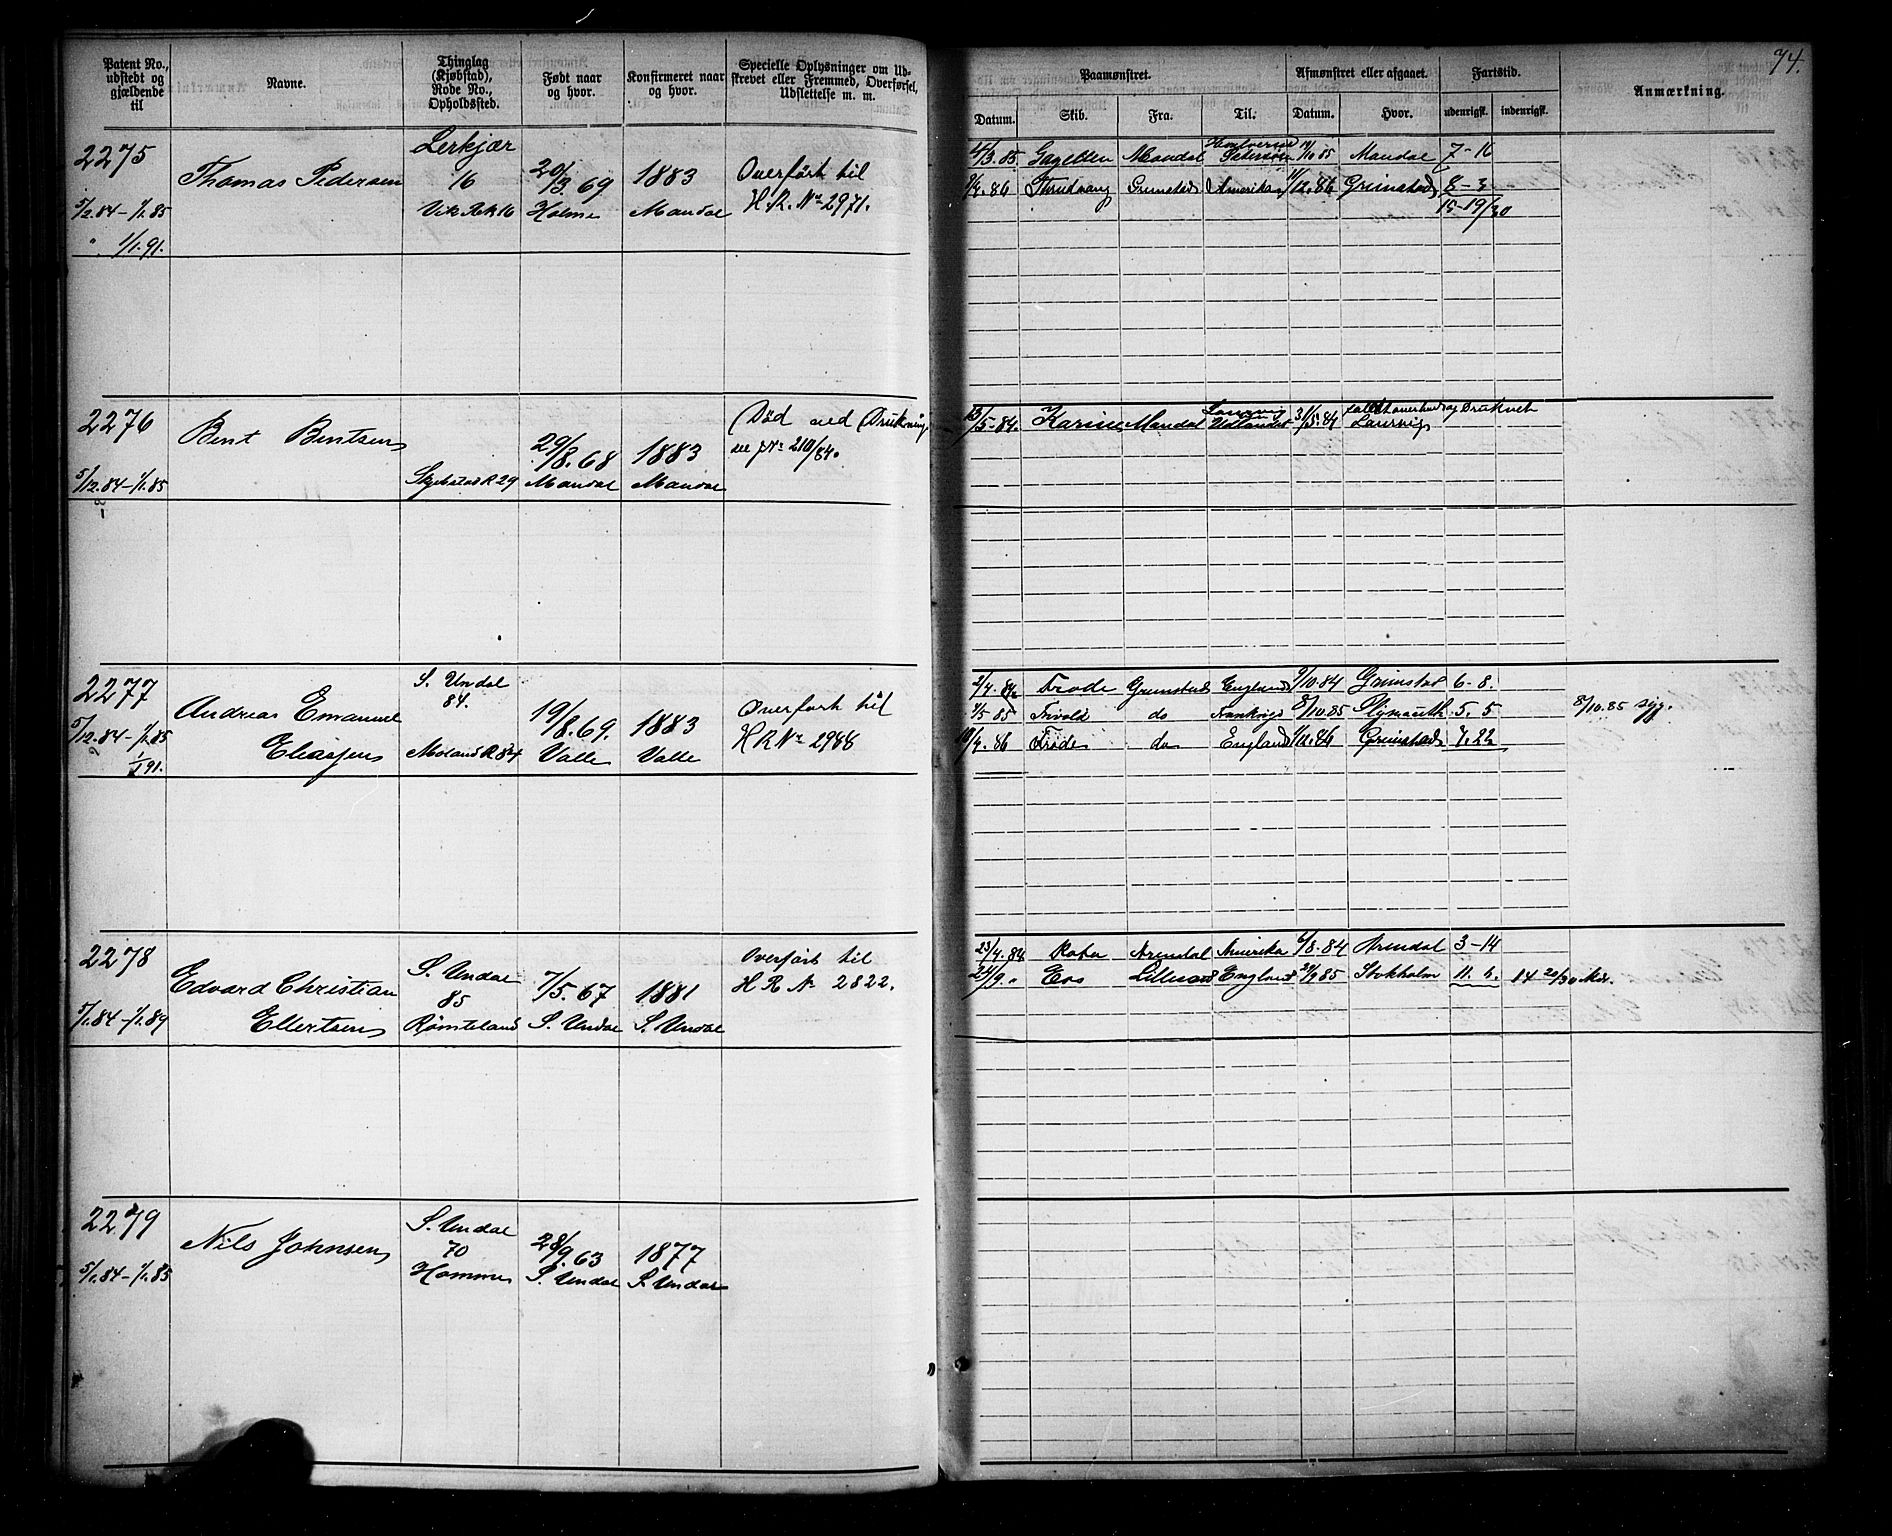 74.
Patent No., udstedt og gjældende til
Navne.
Thinglag (Kjøbstad), Rode No., Opholdssted.
Født naar og hvor.
Konfirmeret naar og hvor.
Specielle Oplysninger om Udskrevet eller Fremmed, Overførsel, Udslettelse m. m.
Paamønstret.
Afmønstret eller afgaaet.
Fartstid.
Anmærkning.
Datum.
Skib.
Fra.
Til.
Datum.
Hvor.
udenrigsk.
indenrigsk.
2275
Thomas Pedersen
Lerkjær
16
20/3.69
1883
Overført til
H.R. No 2971.
5/12.84–1/1.85
Holme
Mandal
" 1/1.91.
4/3.85 Gazellen Mandal Petersborg /10 85 Mandal 7–16
Grimstad Amerika /12.86 Grimstad 8–3
15–19/30
2276
Bent Bentsen
29/8.68
1883
Død ved Drukning
se No 210/84.
5/12.84–1/1.85
Mandal
Mandal
13/5–84. Karine Mandal Udlandet 31/5.84 Laurvig
2277
Andreas Emanuel
Eliassen
S. Undal
84.
19/8.69.
1883
Overført til
H R No 2988
5/12.84–1/1.85
1/1 91.
Valle
Valle
2/4.84 Frode Grimstad England /10.84 Grimstad 6–8.
/5 85 do Frankrige 8/10.85 Plymouth 5.5 8/10.85 syg.
/4.86 Frode do England /12.86 Grimstad 7.22
2278
Edvard Christian
Ellertsen
S. Undal
85
Rømteland
7/5.67
1881
Overført til
H R No 2822.
5/1.84–1/1.89
S. Undal
S. Undal
23/4.84 Arendal Amerika /8–84 Arendal 3–14
24/9. " Eos Lillesand England /9 85 Stokholm 11.6. 14 20/30 Mdr.
2279
Nils Johnsen
S. Undal
70
28/9.63
1877
5/1.84–1/1.85
S. Undal
S. Undal